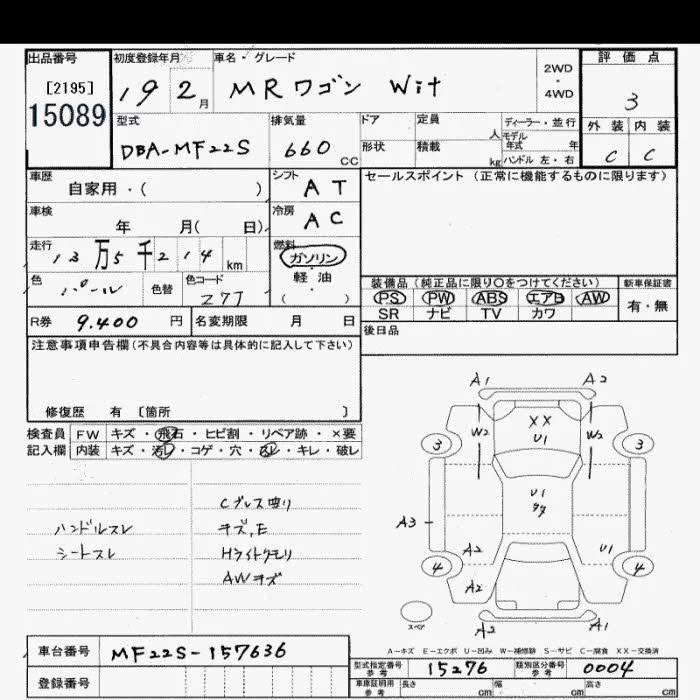 出品番号
[2195]
15089
初度登録年月
19 2月
車名・グレード
MRワゴン Wit
2WD
・
4WD
評価点
3
外装 内装
C C
型式
DBA-MF22S
排気量
660 CC
ドア 定員 人
形状 積載 kg
ディーラー・並行
モデル
年式 年
ハンドル 左・右
車歴
自家用・( )
シフト
AT
セールスポイント (正常に機能するものに限ります)
車検
年 月( 日)
冷房
AC
走行
13万5千214 km
燃料
ガソリン
・
軽油
( ・ )
色
パール
色替
色コード
Z7T
装備品 (純正品に限り○をつけてください)
新車保証書
PS PW ABS エアB AW
有・無
SR ナビ TV カワ
R券 9.400 円
名変期限 月 日
後日品
注意事項申告欄 (不具合内容等は具体的に記入して下さい)
修復歴 有 〔箇所 〕
検査員
記入欄
FW キズ・飛石・ヒビ割・リペア跡・×要
内装 キズ・汚レ・コゲ・穴・スレ・キレ・破レ
ハンドルスレ
シートスレ
キズ,E
Hライトクモリ
AWキズ
A1 A2
XX
U1
W2 W2
3 3
U1
A3
A2 U1
4 4
A2
スペア
A2 A1
A-キズ E-エクボ U-凹み W-補修跡 S-サビ C-腐食 XX-交換済
車台番号
MF22S-157636
登録番号
型式指定番号
参考
15276
類別区分番号
参考
0004
車庫証明用
参考
長さ cm 幅 cm 高さ cm